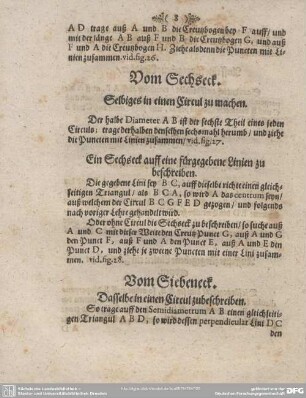 8
A D trage auß A und B die Creutzbogen bey F auff/ und
mit der länge A B auß F und B die Creutzbogen G, und auß
F und A die Creutzbogen H. Ziehe alsdenn die Puncten mit Li-
nien zusammen. vid. fig. 26.
Vom Sechseck.
Selbiges in einen Circul zu machen.
Der halbe Diameter A B ist der sechste Theil eines jeden
Circuls; trage derhalben denselben sechsmahl herumb/ und ziehe
die Puncten mit Linien zusammen/ vid. fig. 27.
Ein Sechseck auff eine fürgegebene Linien zu
beschreiben.
Die gegebene Lini sey B C, auff dieselbe richt einen gleich-
seitigen Triangul/ als B C A, so wird A das centrum seyn/
auß welchem der Circul B C G F E D gezogen/ und folgends
nach voriger Lehre gehandelt wird.
Oder ohne Circul die Sechseck zu beschreiben/ so suche auß
A und C mit dieser Weite den Creutz-Punct G, auß A und G
den Punct F, auß F und A den Punct E, auß A und E den
Punct D, und ziehe je zweene Puncten mit einer Lini zusam-
men. vid. fig. 28.
Vom Siebeneck.
Dasselbe in einen Circul zubeschreiben.
So trage auff den Semidiametrum A B einen gleichseiti-
gen Triangul A B D, so wird dessen perpendicular Lini D C
den